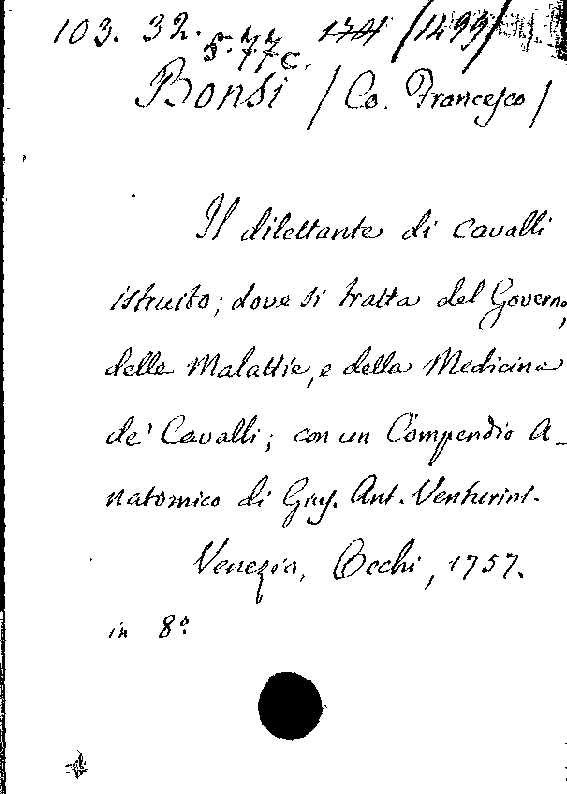 103. 32. 174 /1499/
5. 77 c.
Bonsi / Co. Francesco /
Il dilettante di Cavalli
istruito; dove si tratta del Governo,
delle Malattie, e della Medicina
de' Cavalli; con un Compendio A-
natomico di Gius. Ant. Venturini.
Venezia, Occhi, 1757.
in 8º